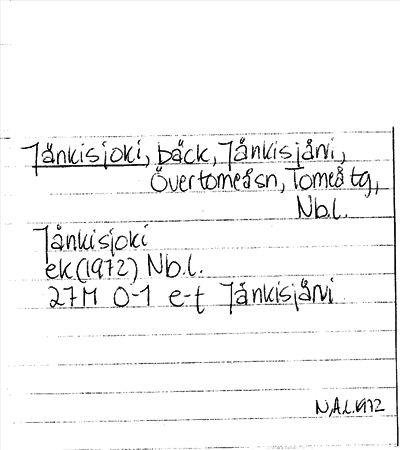 Jänkisjoki, bäck, Jänkisjärvi,
Övertorneå sn, Torneå tg,
Nb.l.
Jänkisjoki
ek (1972) Nb.l.
27M 0-1 e-f Jänkisjärvi
N.A.L. 1972